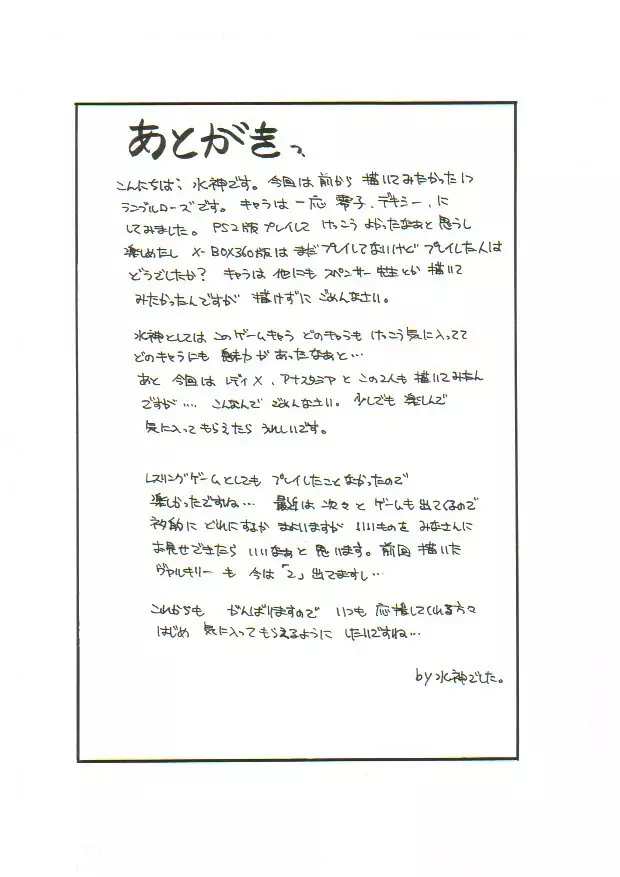 あとがきっ
こんにちは、水神です。今回は前から描いてみたかった
ランブルローズです。キャラは一応零子、デキシー、に
してみました。PS2版プレイしてけっこうよかったなぁと思うし
楽しめたし X-BOX360版はまだプレイしてないけどプレイした人は
どうでしたか？キャラは他にもスペンサー先生とか描いて
みたかったんですが描けずにごめんなさい。
水神としてはこのゲームキャラどのキャラもけっこう気に入ってて
どのキャラにも魅力があったなぁと…
あと今回はレディX、アナスタシアとこの2人も描いてみたん
ですが…こんなんでごめんなさい。少しでも楽しんで
気に入ってもらえたらうれしいです。
レスリングゲームとしてもプレイしたことなかったので
楽しかったですね…最近は次々とゲームも出てくるので
ネタ的にどれにするかまよいますがいいものをみなさんに
お見せできたらいいなぁと思います。前回描いた
ヴァルキリーも今は「2」出てますし…
これからもがんばりますのでいつも応援してくれる方々
はじめ気に入ってもらえるようにしたいですね…
by水神でした。